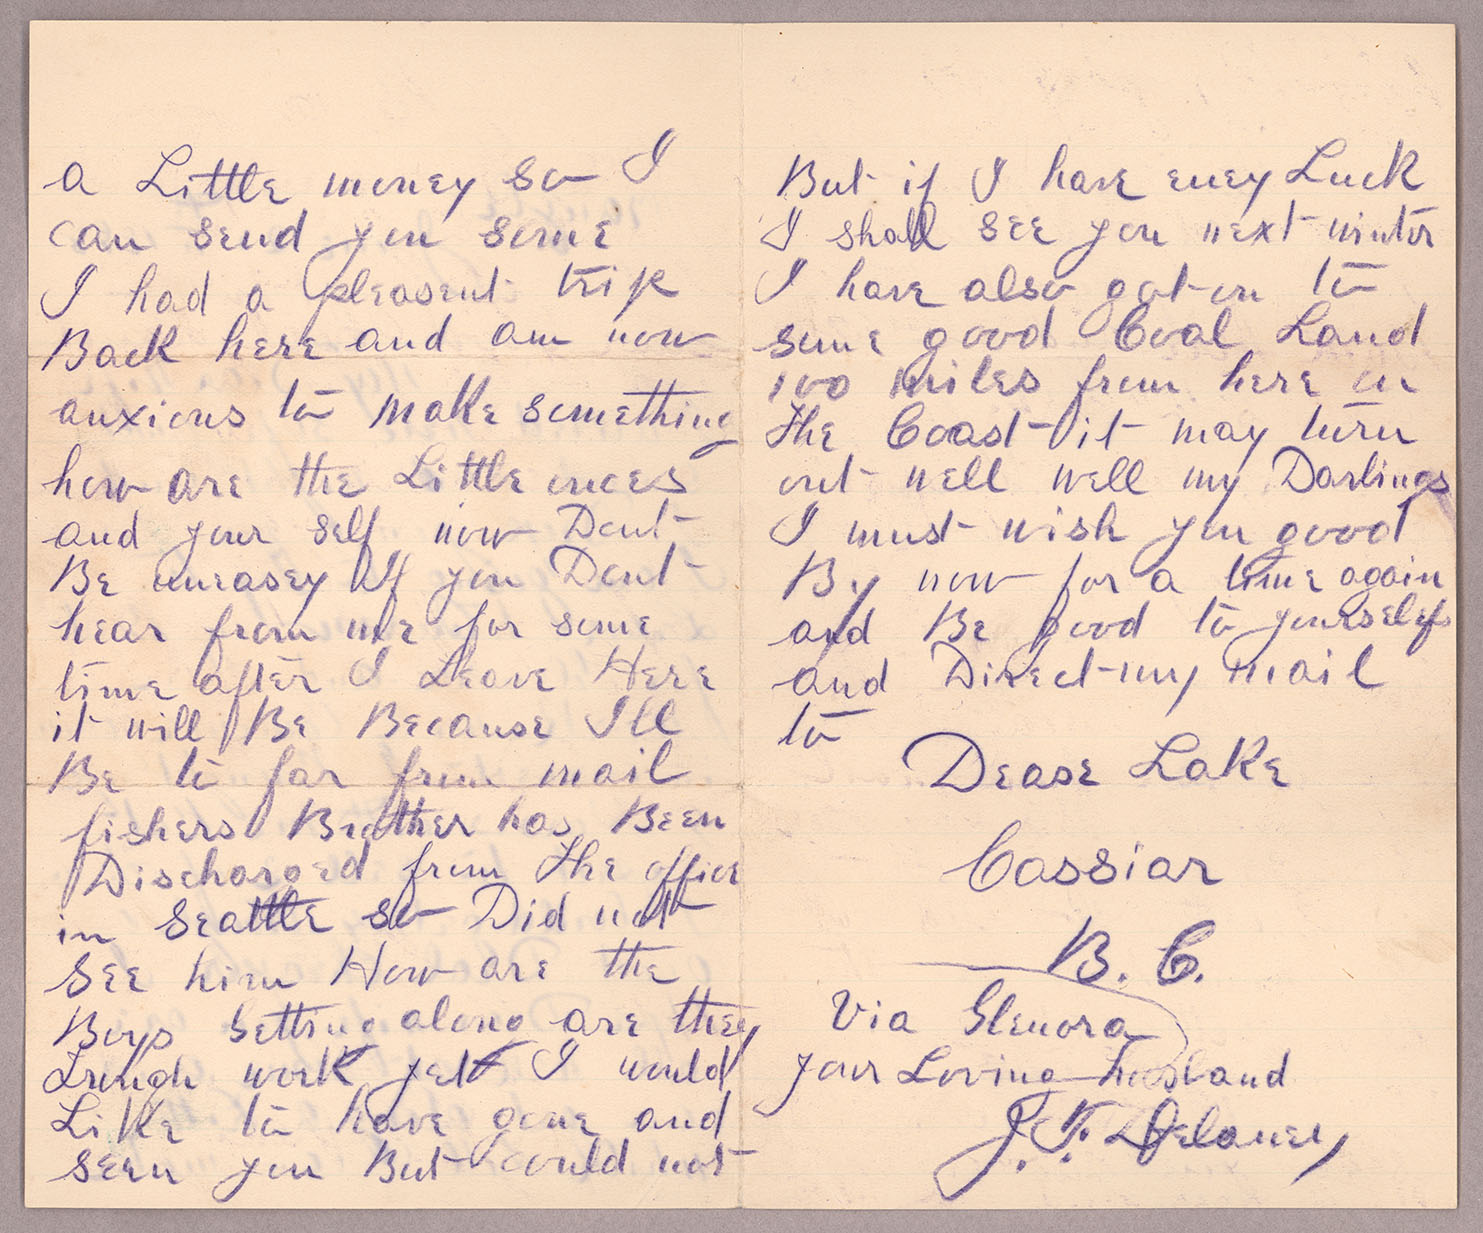 a Little money so I
can send you some
I had a pleasent trip
Back here and am now
anxious to make something
how are the Little onces
and your self now Dont
Be uneasey If you Dont
hear from me for some
time after I Leave Here
it will Be Because Ill
Be to far from mail
fishers Brother has Been
Discharged from the office
in Seattle so Did not
See him How are the
Boys getting along are they
through work yet I would
Like to have gone and
seen you But could not
But if I have eney Luck
I shall see you next winter
I have also got on to
some good Coal Land
100 miles from here on
the Coast it may turn
out well well my Darlings
I must wish you good
By now for a time again
and Be good to yourselefs
and Direct my mail
to
Dease Lake
Cassiar
B. C.
Via Glenora
your Loving husband
J. F. Delaney